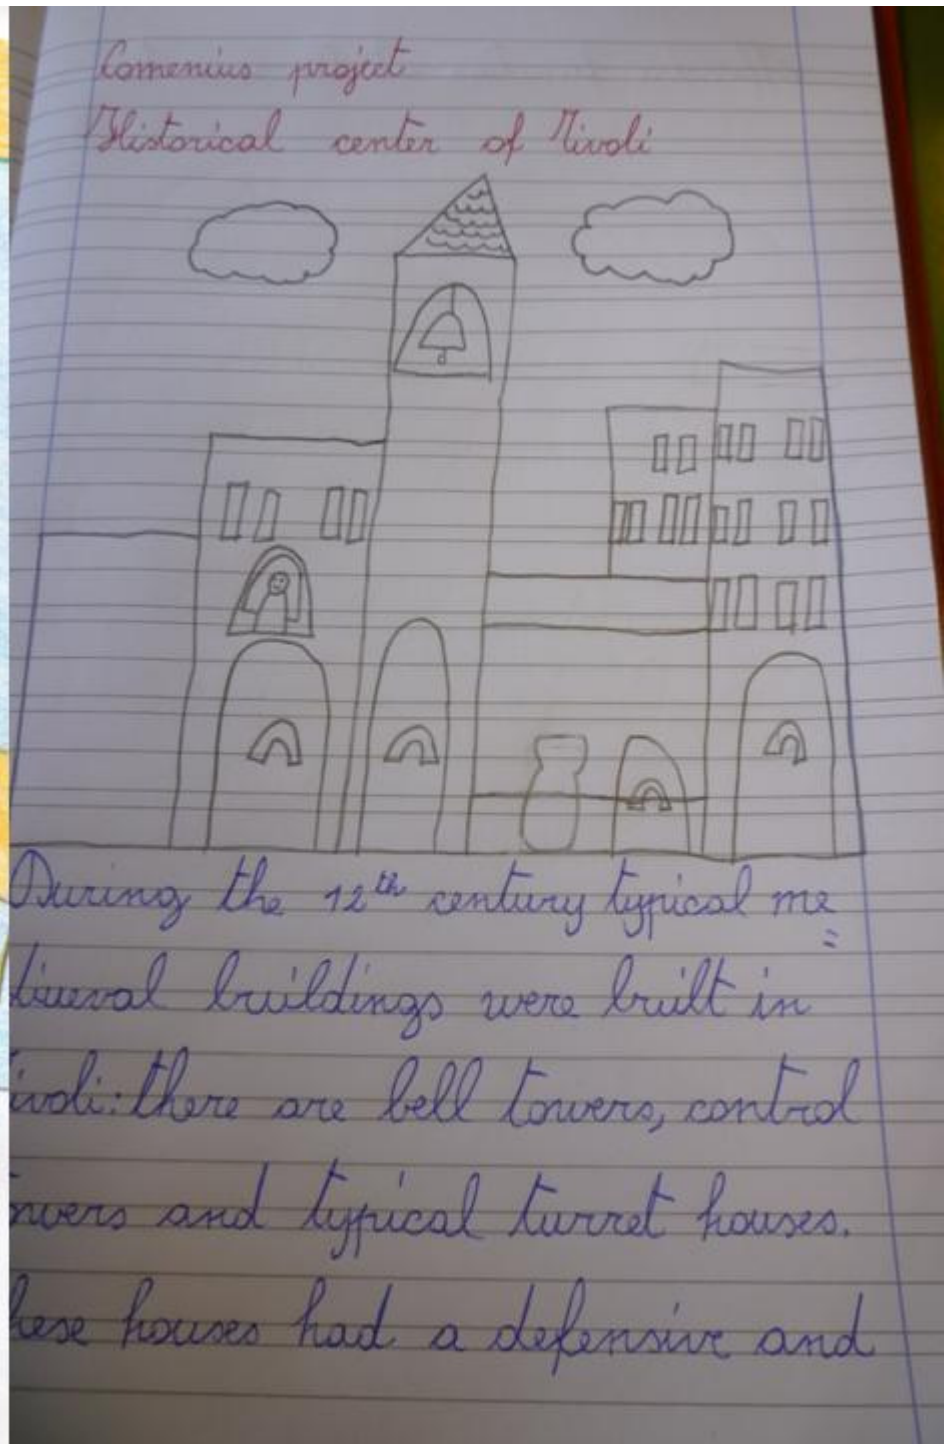 Comenius project
Historical center of Tivoli
During the 12th century typical me=
dieval buildings were built in
ivoli: there are bell towers, control
owers and typical turret houses.
hese houses had a defensive and